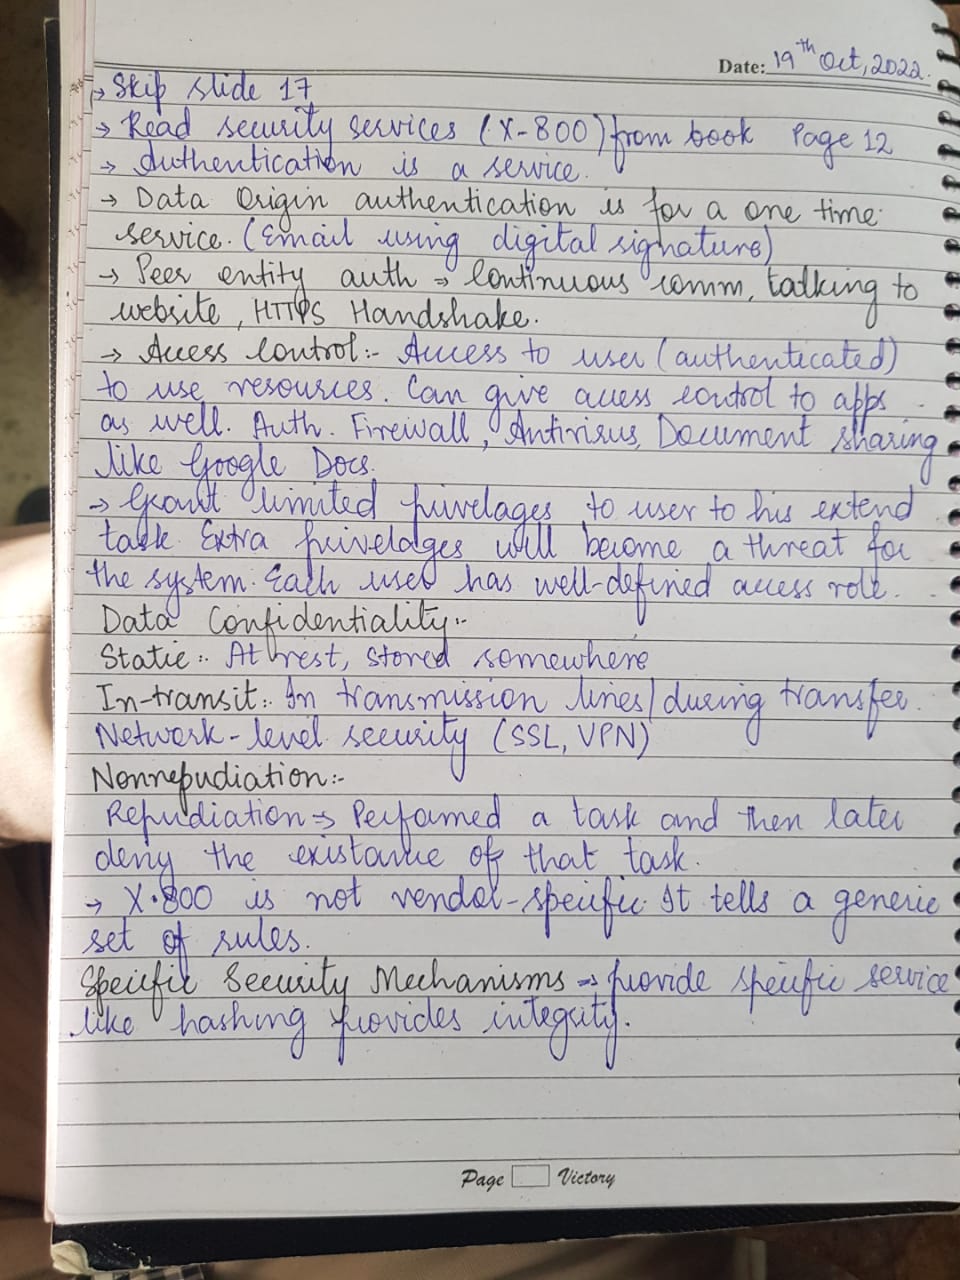 Date: 19th Oct, 2022.
→ Skip slide 17
→ Read security services (X-800) from book Page 12
→ Authentication is a service.
→ Data Origin authentication is for a one time
service. (Email using digital signature)
→ Peer entity auth → Continuous comm, talking to
website, HTTPS Handshake.
→ Access Control:- Access to user (authenticated)
to use resources. Can give access control to apps
as well. Auth. Firewall, Antivirus, Document sharing
like Google Docs.
→ Grant limited privelages to user to his extend
task. Extra privelages will become a threat for
the system. Each user has well-defined access role.
Data Confidentiality:-
Static:- At rest, stored somewhere
In-transit:- In transmission lines/during transfer.
Network-level security (SSL, VPN)
Nonrepudiation:-
Repudiation → Performed a task and then later
deny the existance of that task.
→ X.800 is not vendor-specific. It tells a generic
set of rules.
Specific Security Mechanisms → provide specific service
like hashing provides integrity.
Page Victory